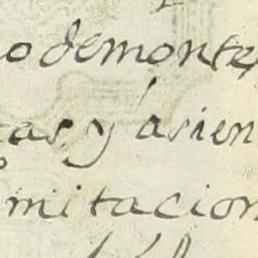 o demonte
as y asien
mitacion